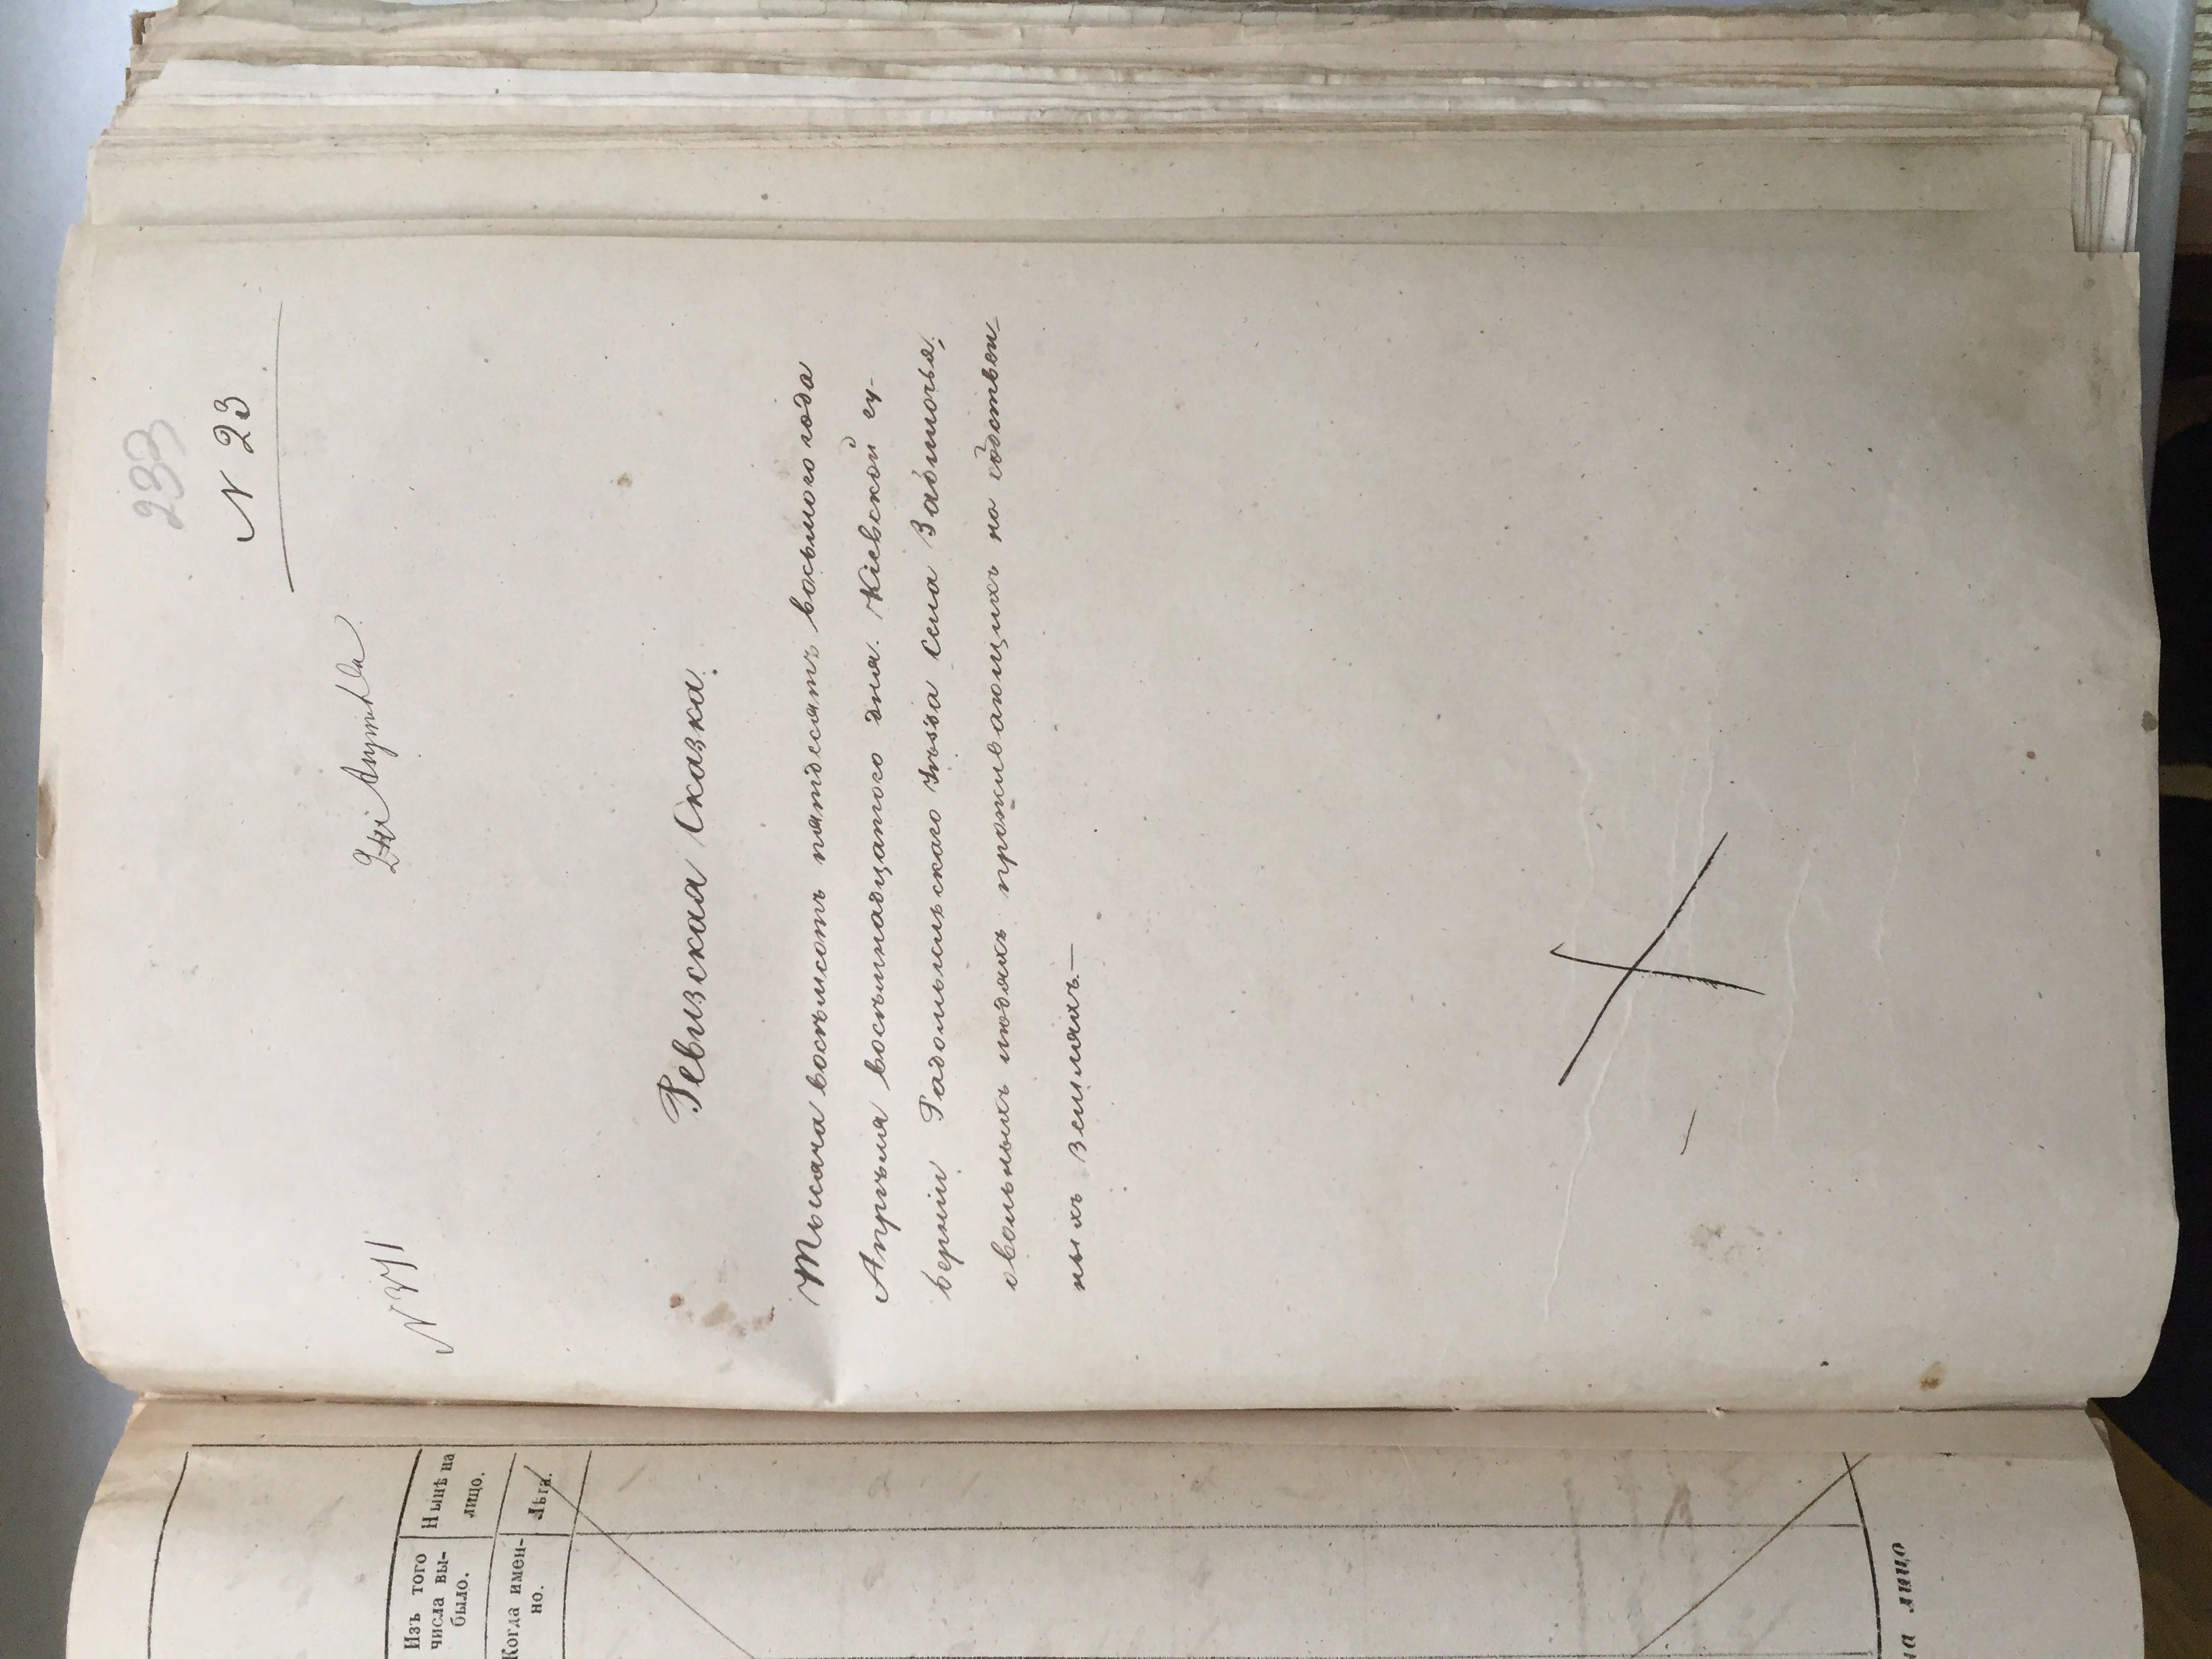 233
N 23
N 371
Ревизская Сказка.
Тысяча восѣмсотъ пятдесятъ восьмого года
Апрѣля восѣмнадцатого дня. Кіевской гу-
берніи Радомысльскаго уѣзда Села Забилочья,
овольныхъ людяхъ проживающихъ на собствен-
ныхъ земляхъ.—
Изъ того
числа вы-
было.
Нынѣ на
лицо.
Когда имен-
но.
Лѣта.
на лицо